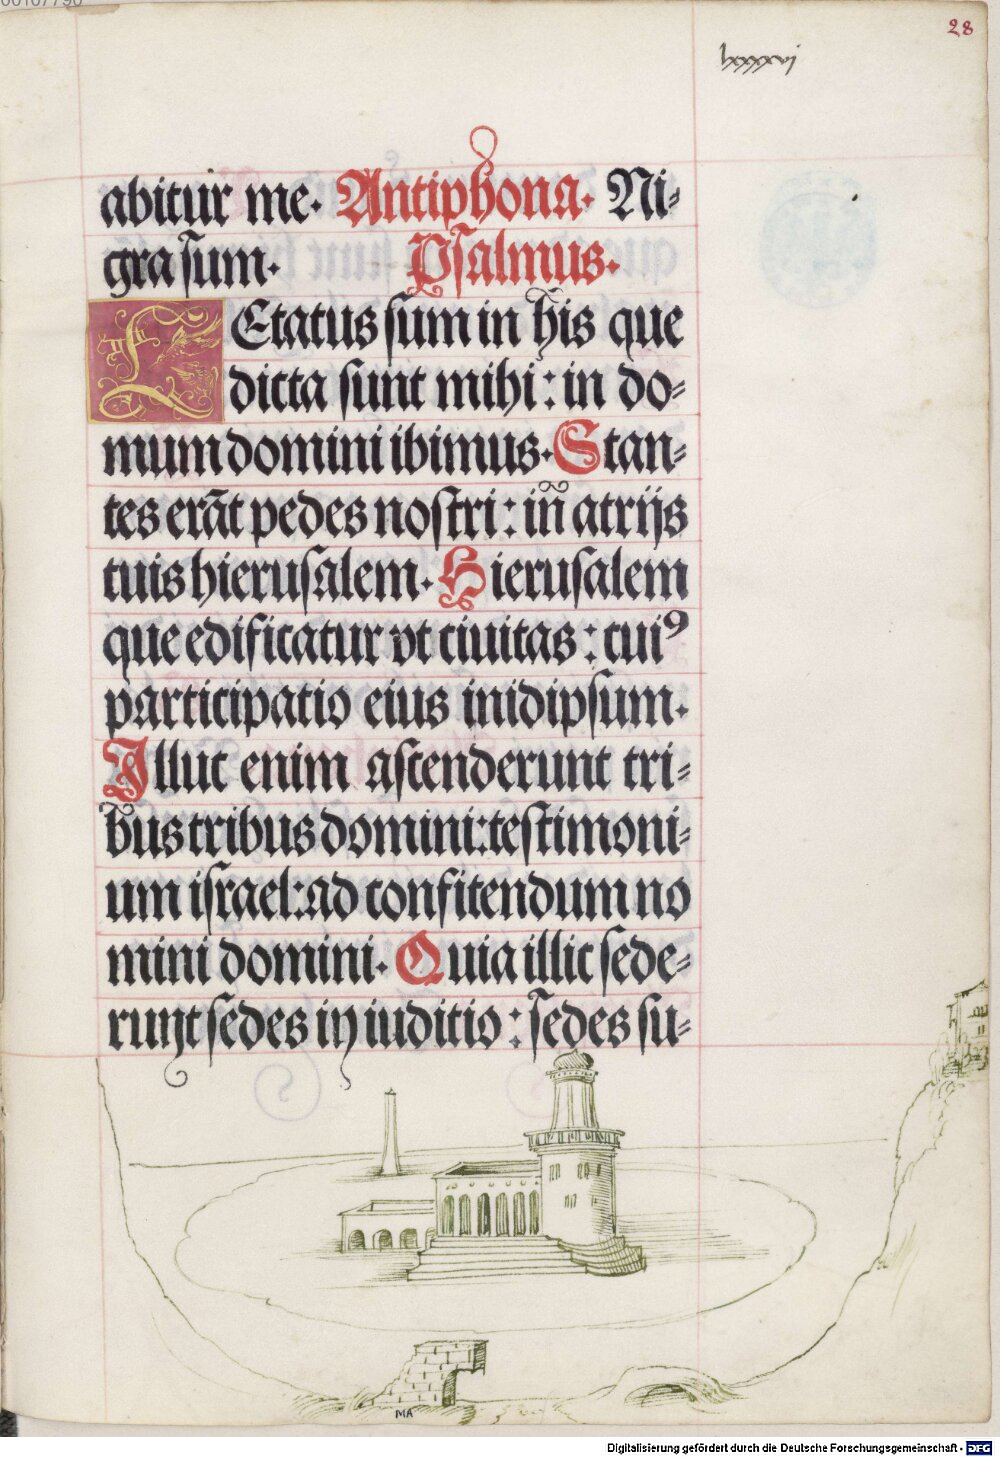 28
lxxxxvj
abitur me. Antiphona. Ni-
gra sum. Psalmus.
LEtatus sum in his que
dicta sunt mihi: in do-
mum domini ibimus. Stan-
tes erāt pedes nostri: in atrijs
tuis hierusalem. Hierusalem
que edificatur vt ciuitas: cuiꝰ
participatio eius inidipsum.
Illuc enim ascenderunt tri-
bus tribus domini: testimoni-
um israel: ad confitendum no
mini domini. Quia illic sede-
runt sedes in iuditio: sedes su-
MA
Digitalisierung gefördert durch die Deutsche Forschungsgemeinschaft - DFG